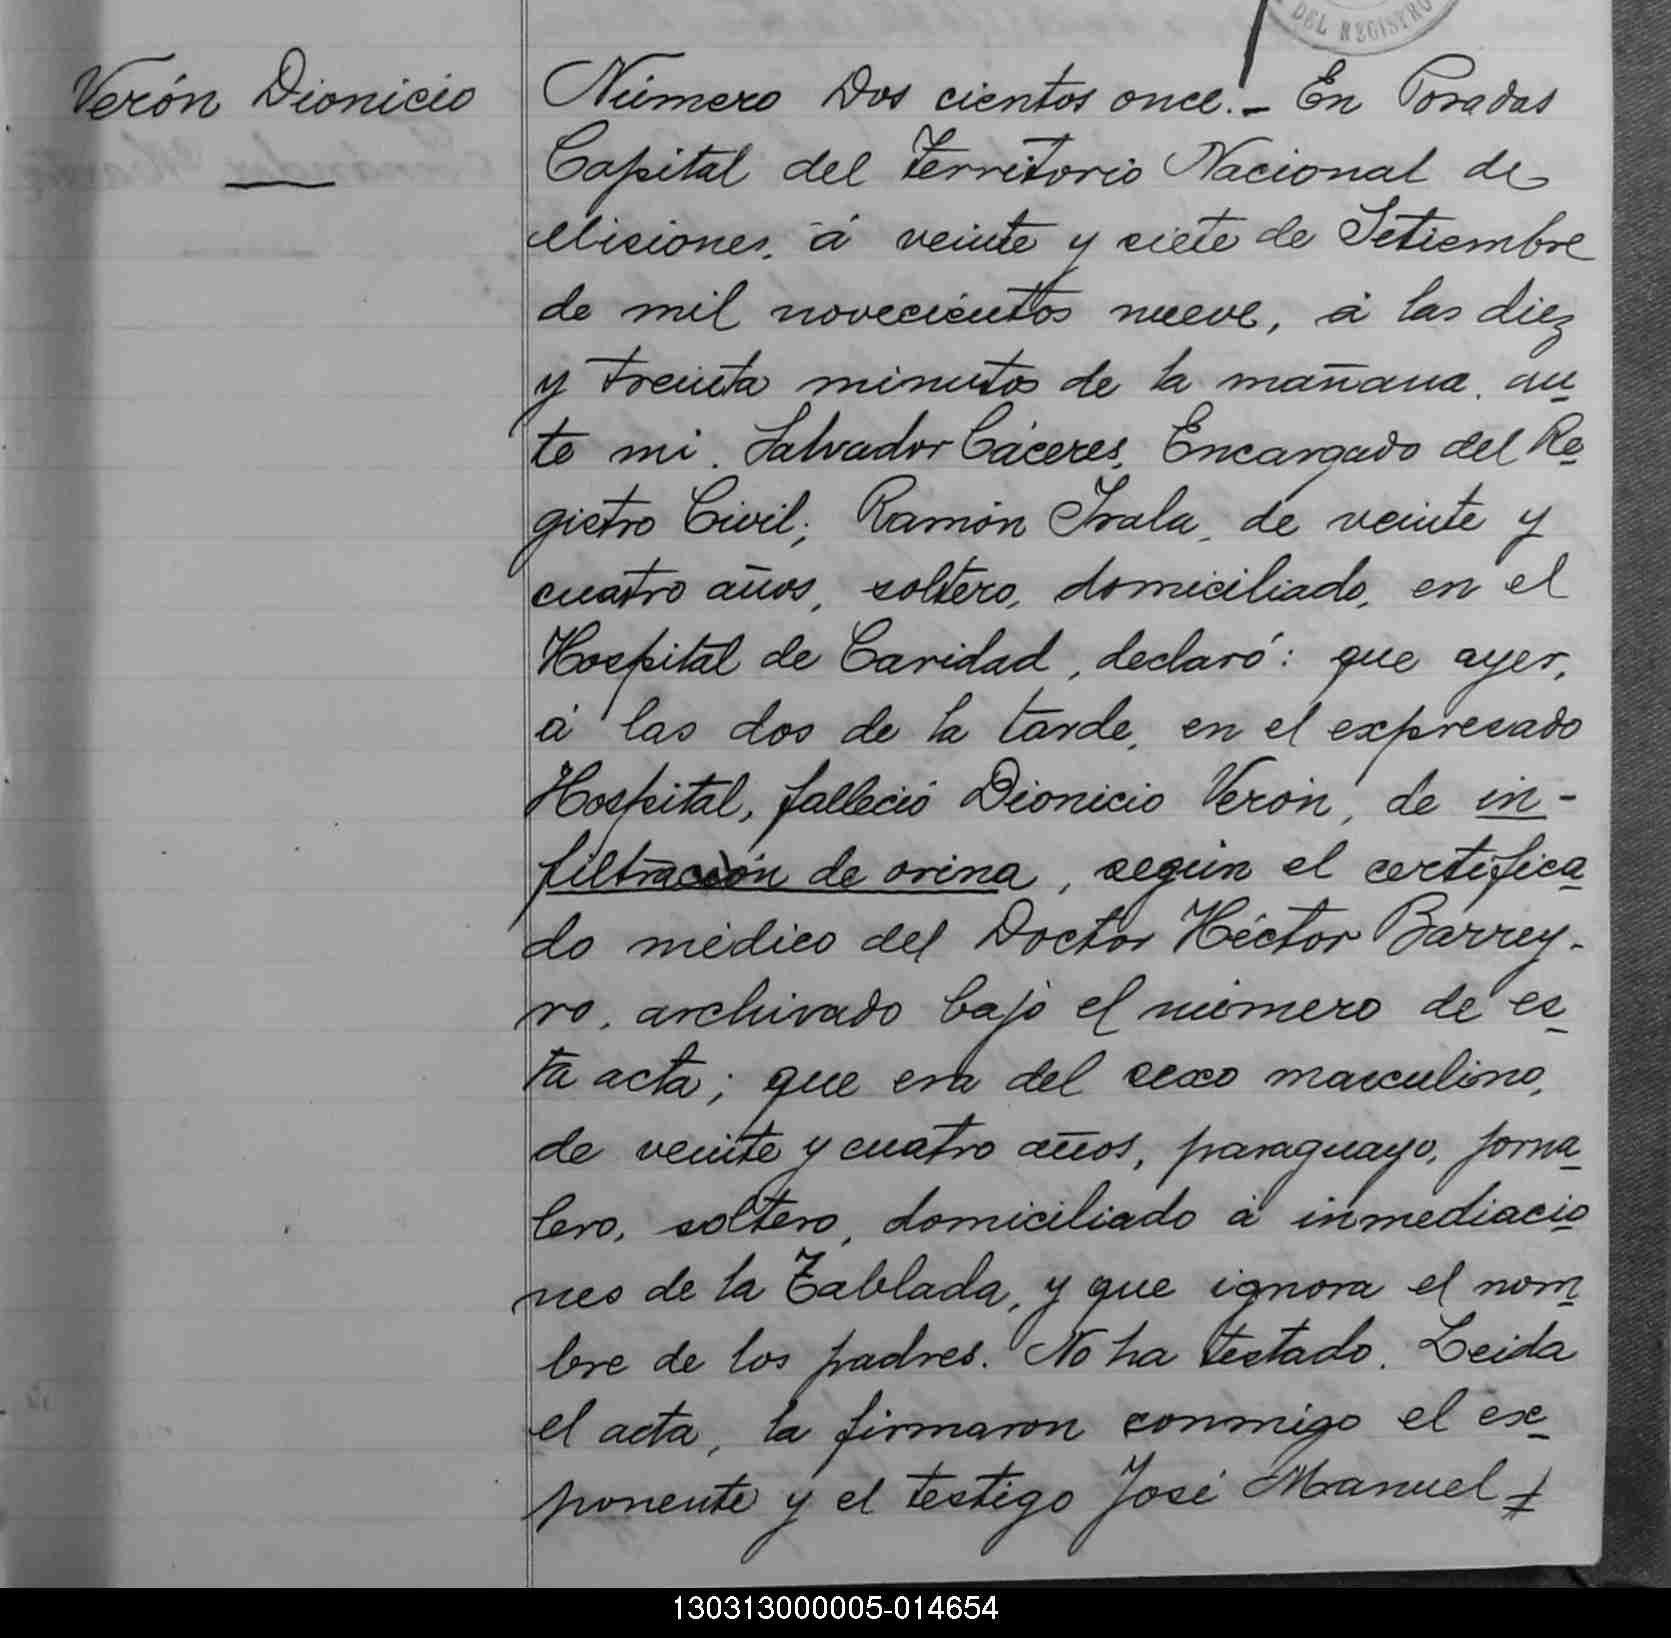 DEL REGISTRO
Verón Dionicio
Número Dos cientos once.- En Posadas
Capital del Territorio Nacional de
Misiones, á veinte y siete de Setiembre
de mil novecientos nueve, á las diez
y treinta minutos de la mañana, an
te mi, Salvador Cáceres, Encargado del Re
gistro Civil; Ramón Irala, de veinte y
cuatro años, soltero, domiciliado, en el
Hospital de Caridad, declaró: que ayer,
á las dos de la tarde, en el expresado
Hospital, falleció Dionicio Verón, de in-
filtración de orina, según el certifica
do médico del Doctor Héctor Barrey-
ro, archivado bajo el número de es
ta acta; que era del sexo masculino,
de veinte y cuatro años, paraguayo, jorna
lero, soltero, domiciliado á inmediacio
nes de la Tablada, y que ignora el nom
bre de los padres. No ha testado. Leida
el acta, la firmaron conmigo el ex
ponente y el testigo José Manuel
130313000005-014654